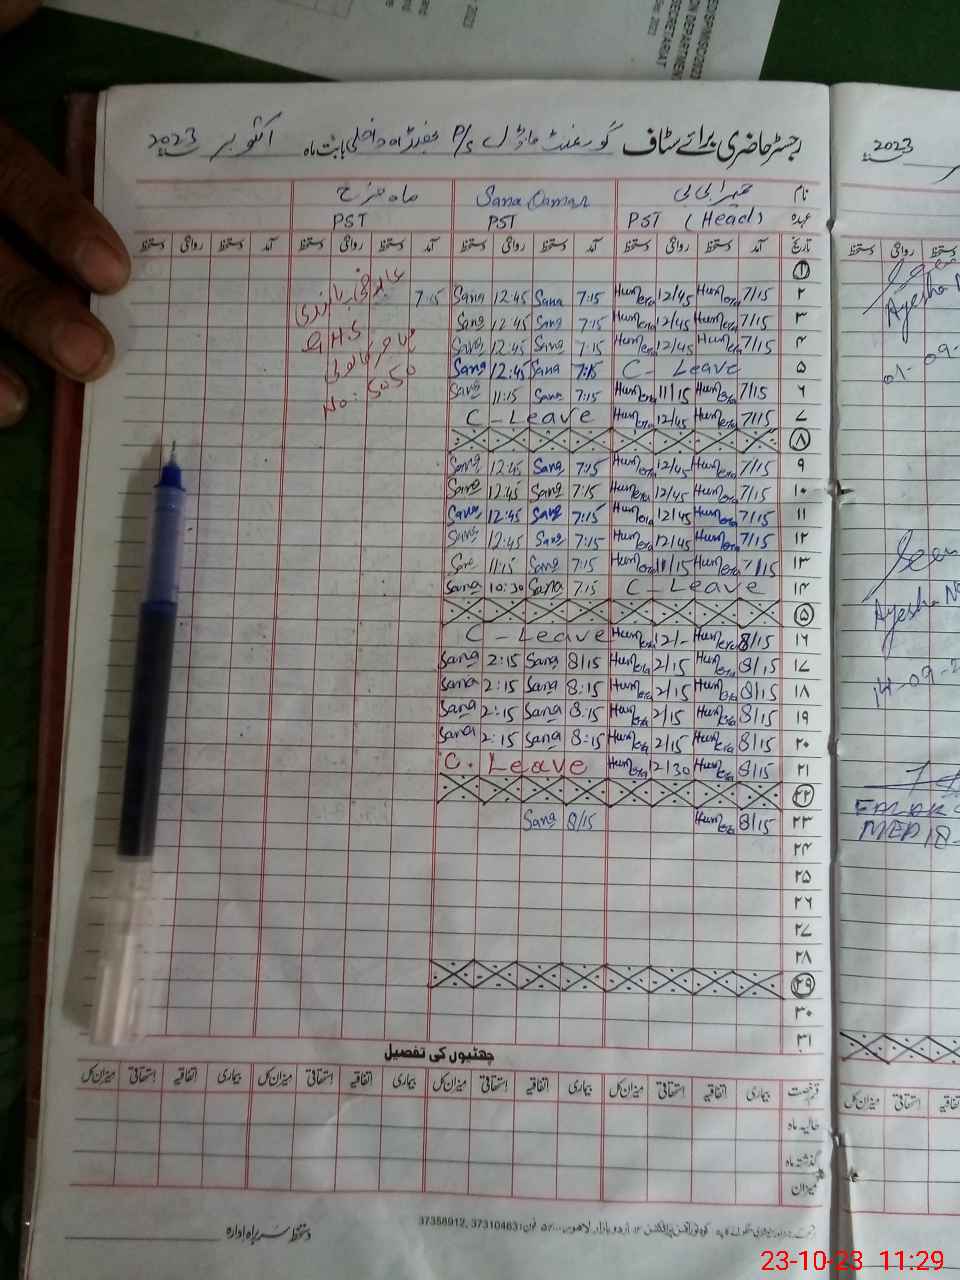 EDSP/MISC/2022
ON DEPARTMENT
SECRETARIAT
2023
رجسٹر حاضری برائے سٹاف گورنمنٹ ماڈل P/S بابت ماہ اکتوبر 2023
2023
نام Sana Qamar ماہ
عہدہ PST (Head) PST PST
تاریخ آمد دستخط روانگی دستخط آمد دستخط روانگی دستخط آمد دستخط روانگی دستخط آمد دستخط روانگی دستخط
۱
۲ 7/15 Humera 12/45 Humera 7:15 Sana 12:45 Sana 7:15
۳ 7/15 Humera 12/45 Humera 7:15 Sana 12:45 Sana
۴ 7/15 Humera 12/45 Humera 7:15 Sana 12:45 Sana
G.H.S
۵ C - Leave 7:15 Sana 12:45 Sana
No: 5050
۶ 7/15 Humera 11/15 Humera 7:15 Sana 11:15 Sana
۷ 7/15 Humera 12/45 Humera C - Leave
۸
۹ 7/15 Humera 12/45 Humera 7:15 Sana 12:45 Sana
۱۰ 7/15 Humera 12/45 Humera 7:15 Sana 12:45 Sana
۱۱ 7/15 Humera 12/45 Humera 7:15 Sana 12:45 Sana
۱۲ 7/15 Humera 12/45 Humera 7:15 Sana 12:45 Sana
۱۳ 7/15 Humera 11/15 Humera 7:15 Sana 11:15 Sana
۱۴ C - Leave 7:15 Sana 10:30 Sana
۱۵
۱۶ 8/15 Humera 12/- Humera C - Leave
۱۷ 8/15 Humera 2/15 Humera 8/15 Sana 2:15 Sana
۱۸ 8/15 Humera 2/15 Humera 8:15 Sana 2:15 Sana
۱۹ 8/15 Humera 2/15 Humera 8:15 Sana 2:15 Sana
۲۰ 8/15 Humera 2/15 Humera 8:15 Sana 2:15 Sana
۲۱ 8/15 Humera 12/30 Humera C. Leave
۲۲
۲۳ 8/15 Humera 8/15 Sana
۲۴
۲۵
۲۶
۲۷
۲۸
۲۹
۳۰
۳۱
چھٹیوں کی تفصیل
فرخصت بیماری اتفاقیہ استحقاقی میزان کل بیماری اتفاقیہ استحقاقی میزان کل بیماری اتفاقیہ استحقاقی میزان کل
حالیہ ماہ
گذشتہ ماہ
میزان
دستخط سربراہ ادارہ
37356912, 37310463
Ayesha
09-
Ayesha
14-09-2
MED 18-
23-10-23 11:29